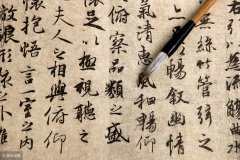 無絲竹管弦之
暢叙幽情
氣清惠風和暢仰
俯察品類之盛
懷足以極視聽之
夫人之相與俯仰
懷抱悟言一室之內
放浪形骸之外雖